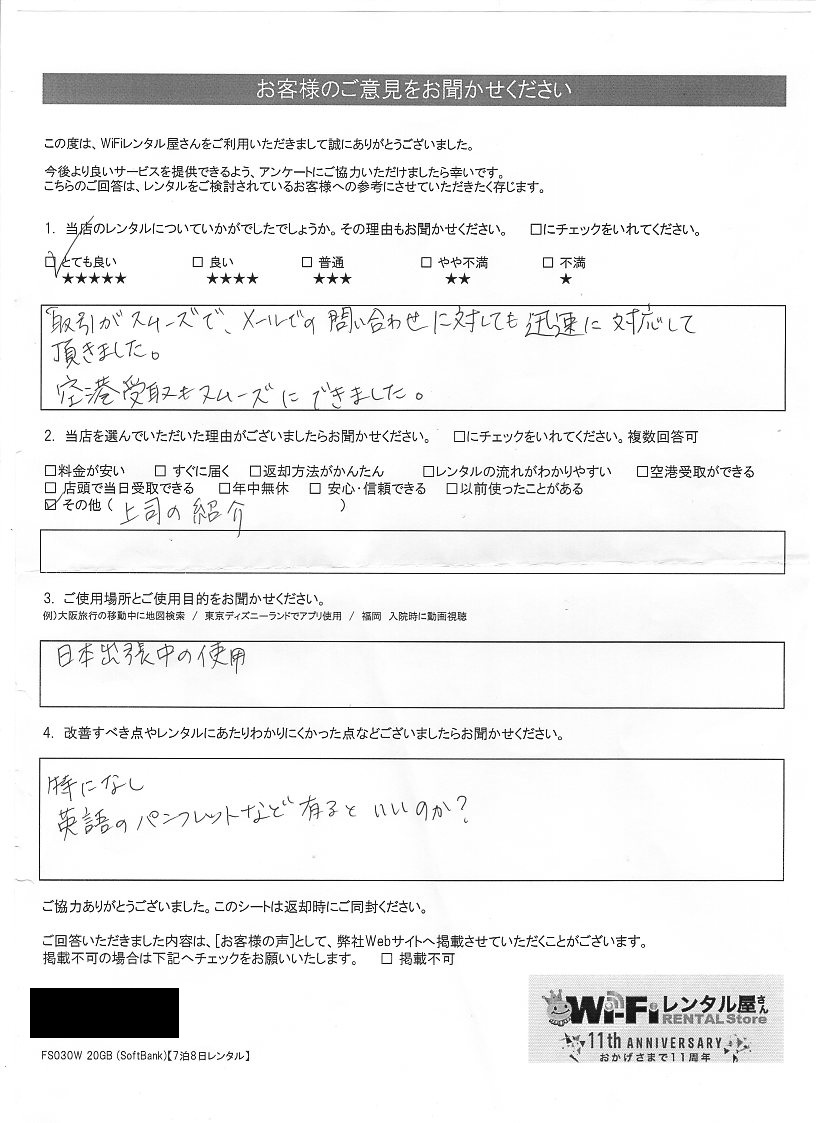 お客様のご意見をお聞かせください
この度は、WiFiレンタル屋さんをご利用いただきまして誠にありがとうございました。
今後より良いサービスを提供できるよう、アンケートにご協力いただけましたら幸いです。
こちらのご回答は、レンタルをご検討されているお客様への参考にさせていただきたく存じます。
1. 当店のレンタルについていかがでしたでしょうか。その理由もお聞かせください。 □にチェックをいれてください。
☑ とても良い □ 良い □ 普通 □ やや不満 □ 不満
★★★★★ ★★★★ ★★★ ★★ ★
取引がスムーズで、メールでの問い合わせに対しても迅速に対応して
頂きました。
空港受取もスムーズにできました。
2. 当店を選んでいただいた理由がございましたらお聞かせください。 □にチェックをいれてください。複数回答可
□料金が安い □ すぐに届く □返却方法がかんたん □レンタルの流れがわかりやすい □空港受取ができる
□ 店頭で当日受取できる □年中無休 □ 安心・信頼できる □以前使ったことがある
☑ その他 ( 上司の紹介 )
3. ご使用場所とご使用目的をお聞かせください。
例)大阪旅行の移動中に地図検索 / 東京ディズニーランドでアプリ使用 / 福岡 入院時に動画視聴
日本出張中の使用
4. 改善すべき点やレンタルにあたりわかりにくかった点などございましたらお聞かせください。
特になし
英語のパンフレットなど有るといいのか?
ご協力ありがとうございました。このシートは返却時にご同封ください。
ご回答いただきました内容は、[お客様の声]として、弊社Webサイトへ掲載させていただくことがございます。
掲載不可の場合は下記へチェックをお願いいたします。 □ 掲載不可
Wi-Fiレンタル屋さん
RENTAL Store
11th ANNIVERSARY
おかげさまで11周年
FS030W 20GB (SoftBank)【7泊8日レンタル】